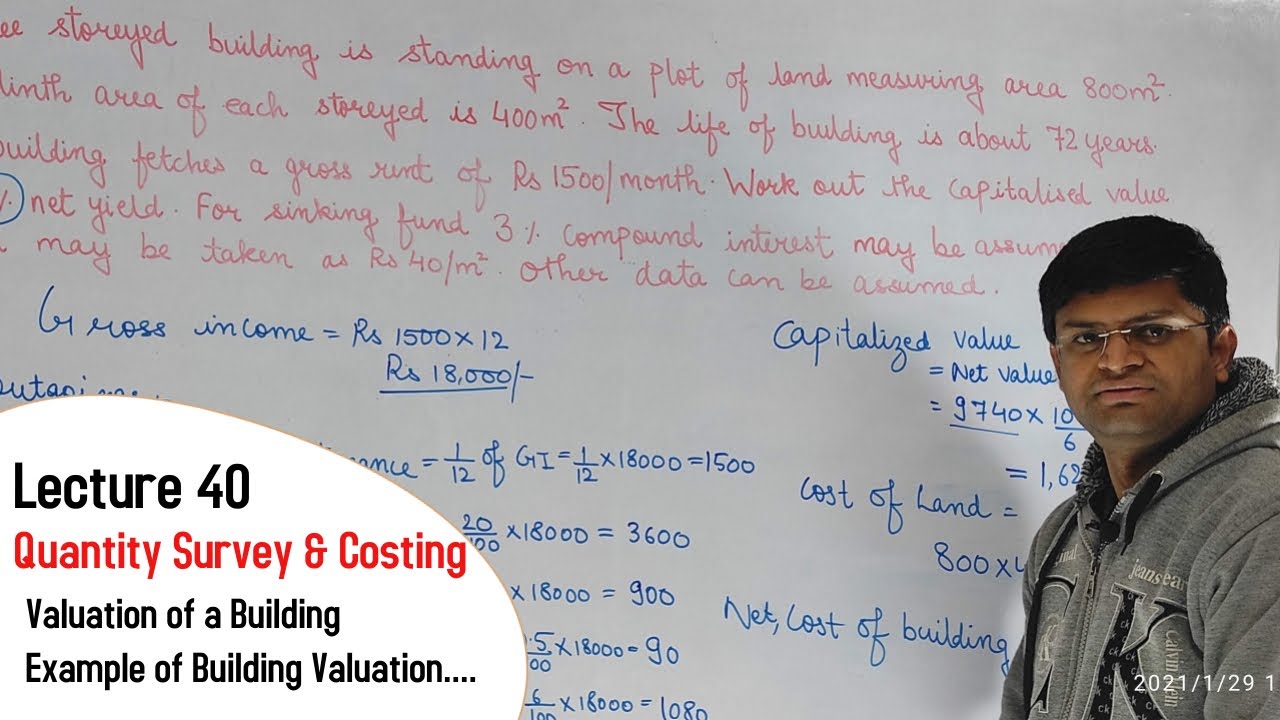 ee storeyed building is standing on a plot of land measuring area 800m².
linth area of each storeyed is 400m². The life of building is about 72 years.
building fetches a gross rent of Rs 1500/month. Work out the capitalised value
%. net yield. For sinking fund 3% compound interest may be assum
may be taken as Rs 40/m². Other data can be assumed.
Gross income = Rs 1500×12
Rs 18,000/-
Capitalized value
= Net value
= 9740 × 10
6
= 1,62
ance = 1/12 of GI = 1/12 ×18000 = 1500
Cost of Land =
800×4
20
×18000 = 3600
×18000 = 900
Net, Cost of building
.5
00 ×18000 = 90
6/100 ×18000 = 1080
Lecture 40
Quantity Survey & Costing
Valuation of a Building
Example of Building Valuation....
jeansear
calvin
Klein
2021/1/29 1